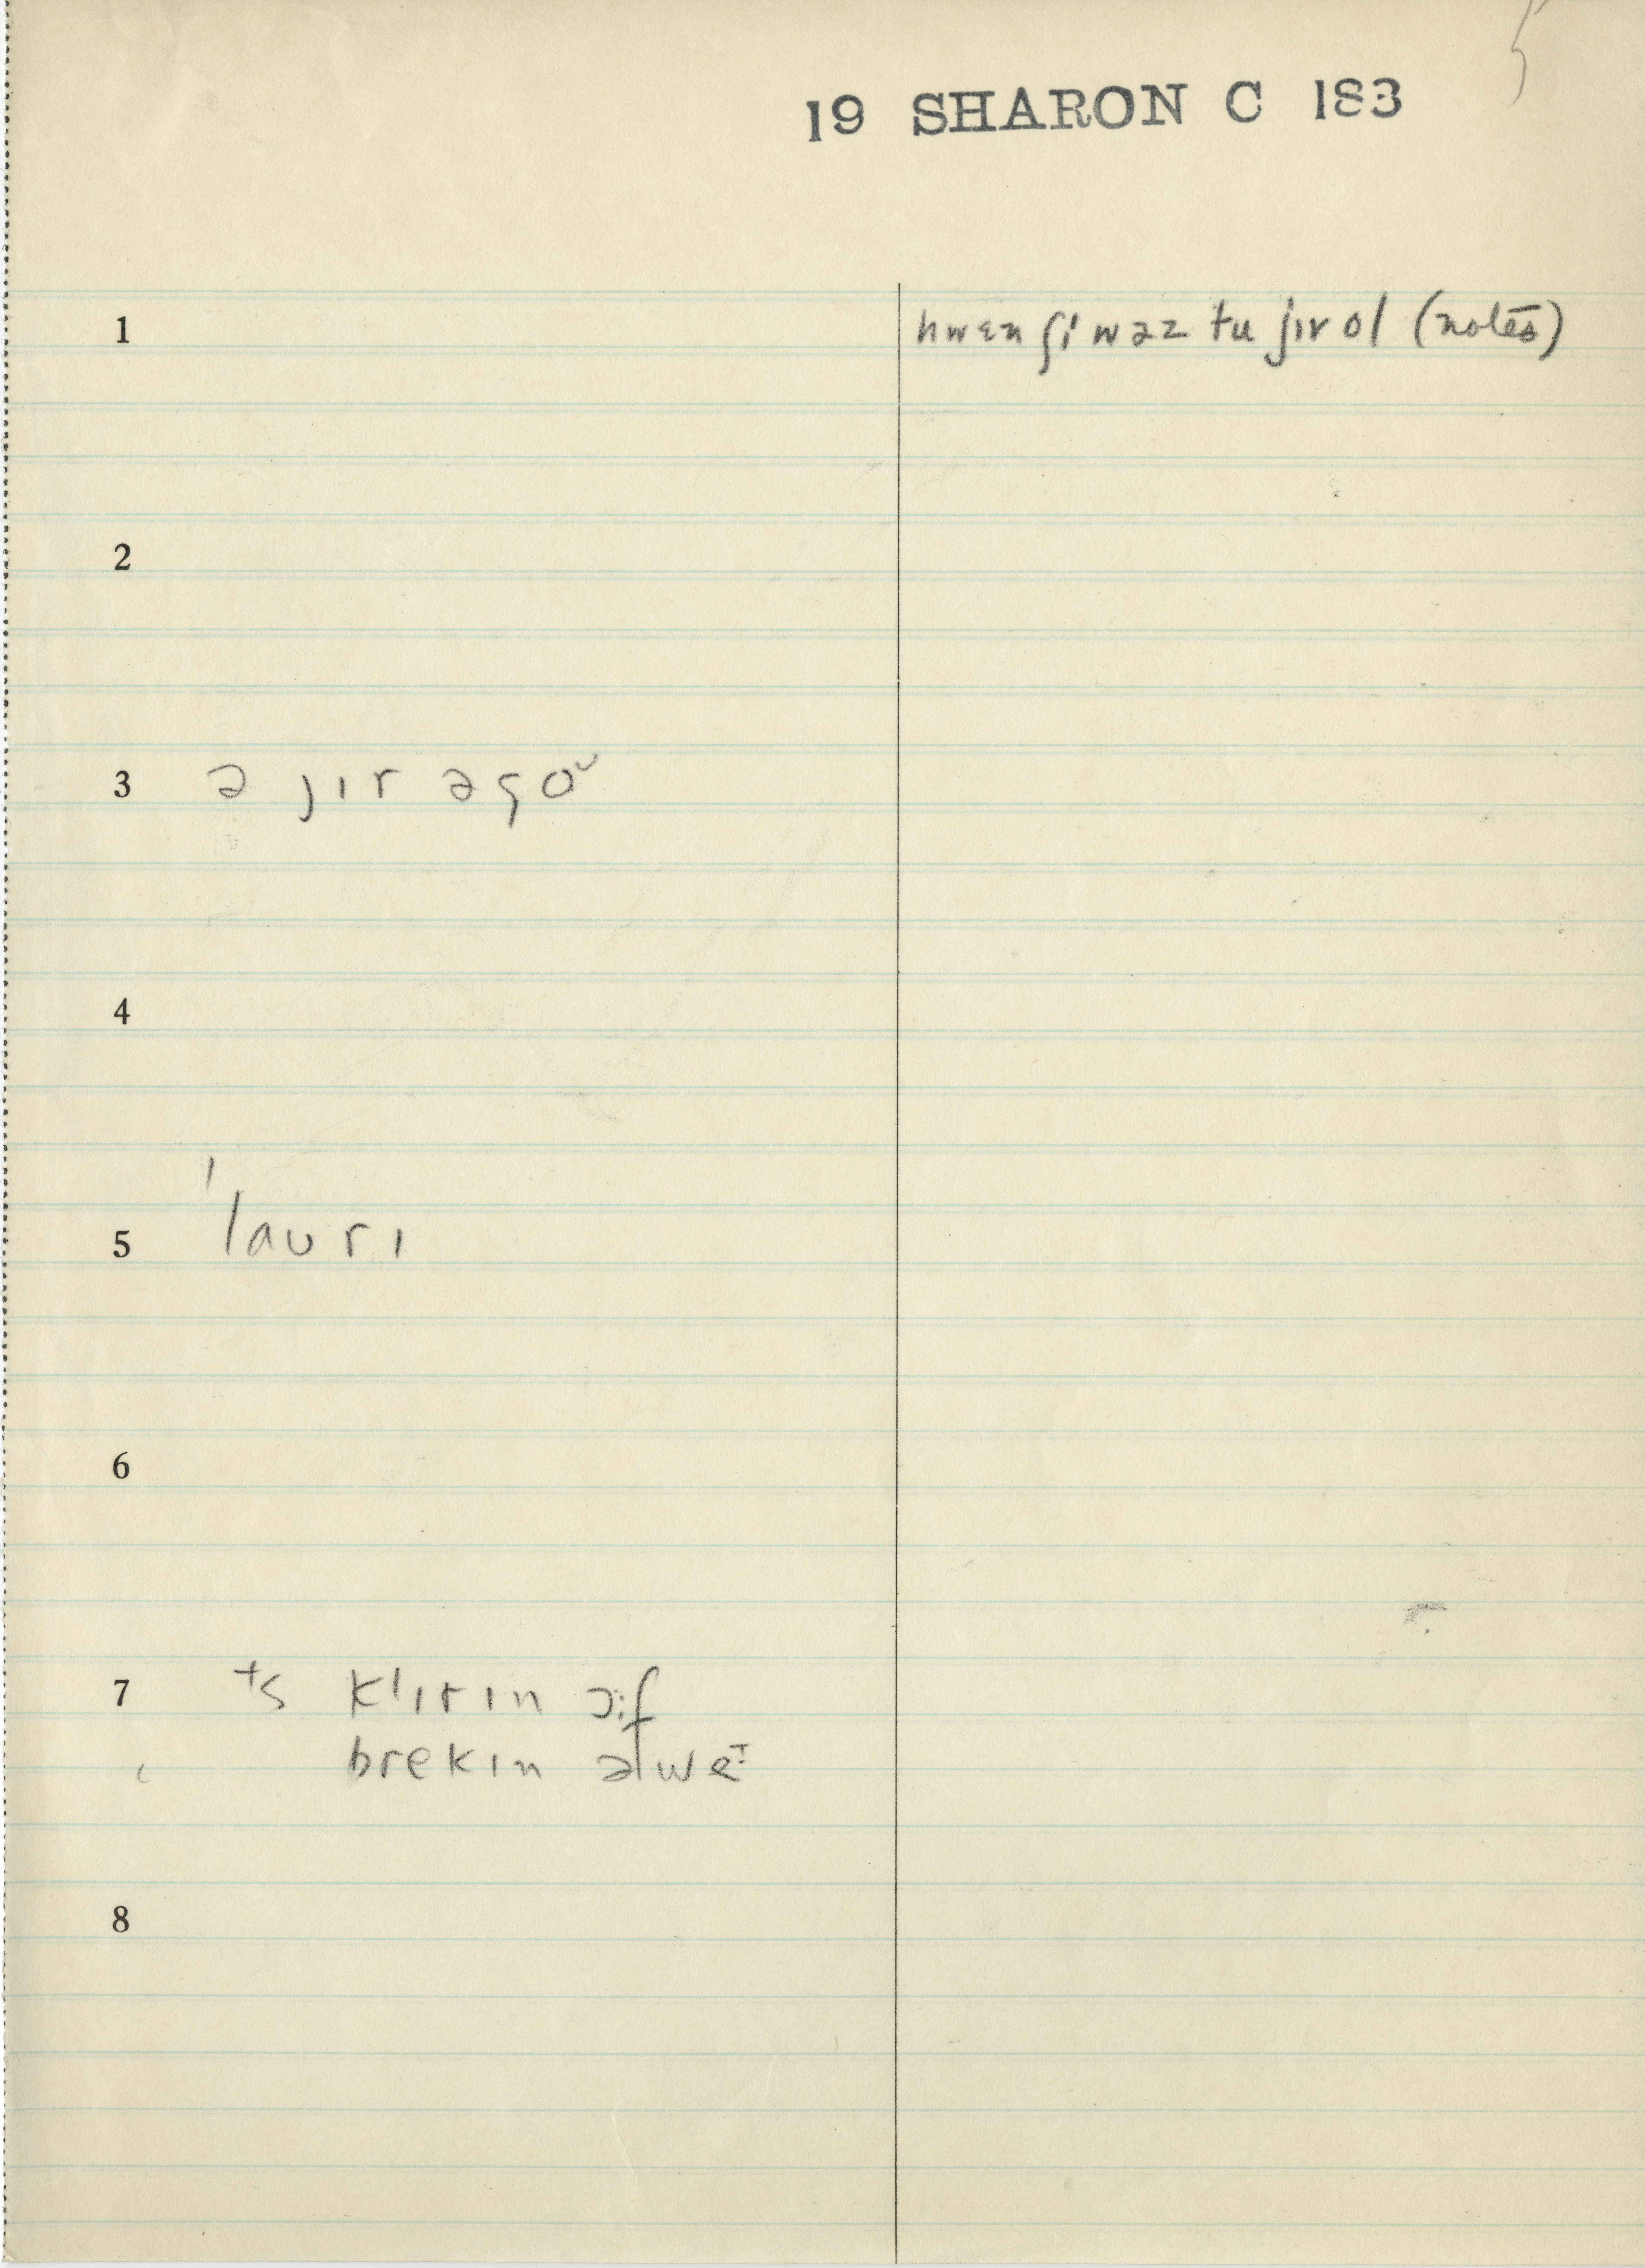 19 SHARON C 183
1 hwɛn ʃi wəz tu jɪr ol (notes)
2
3 ə jɪr əgoᵘ
4
5 ˈlaurɪ
6
7 ts klɪrɪn ɔːf
brekɪn əlwe
8